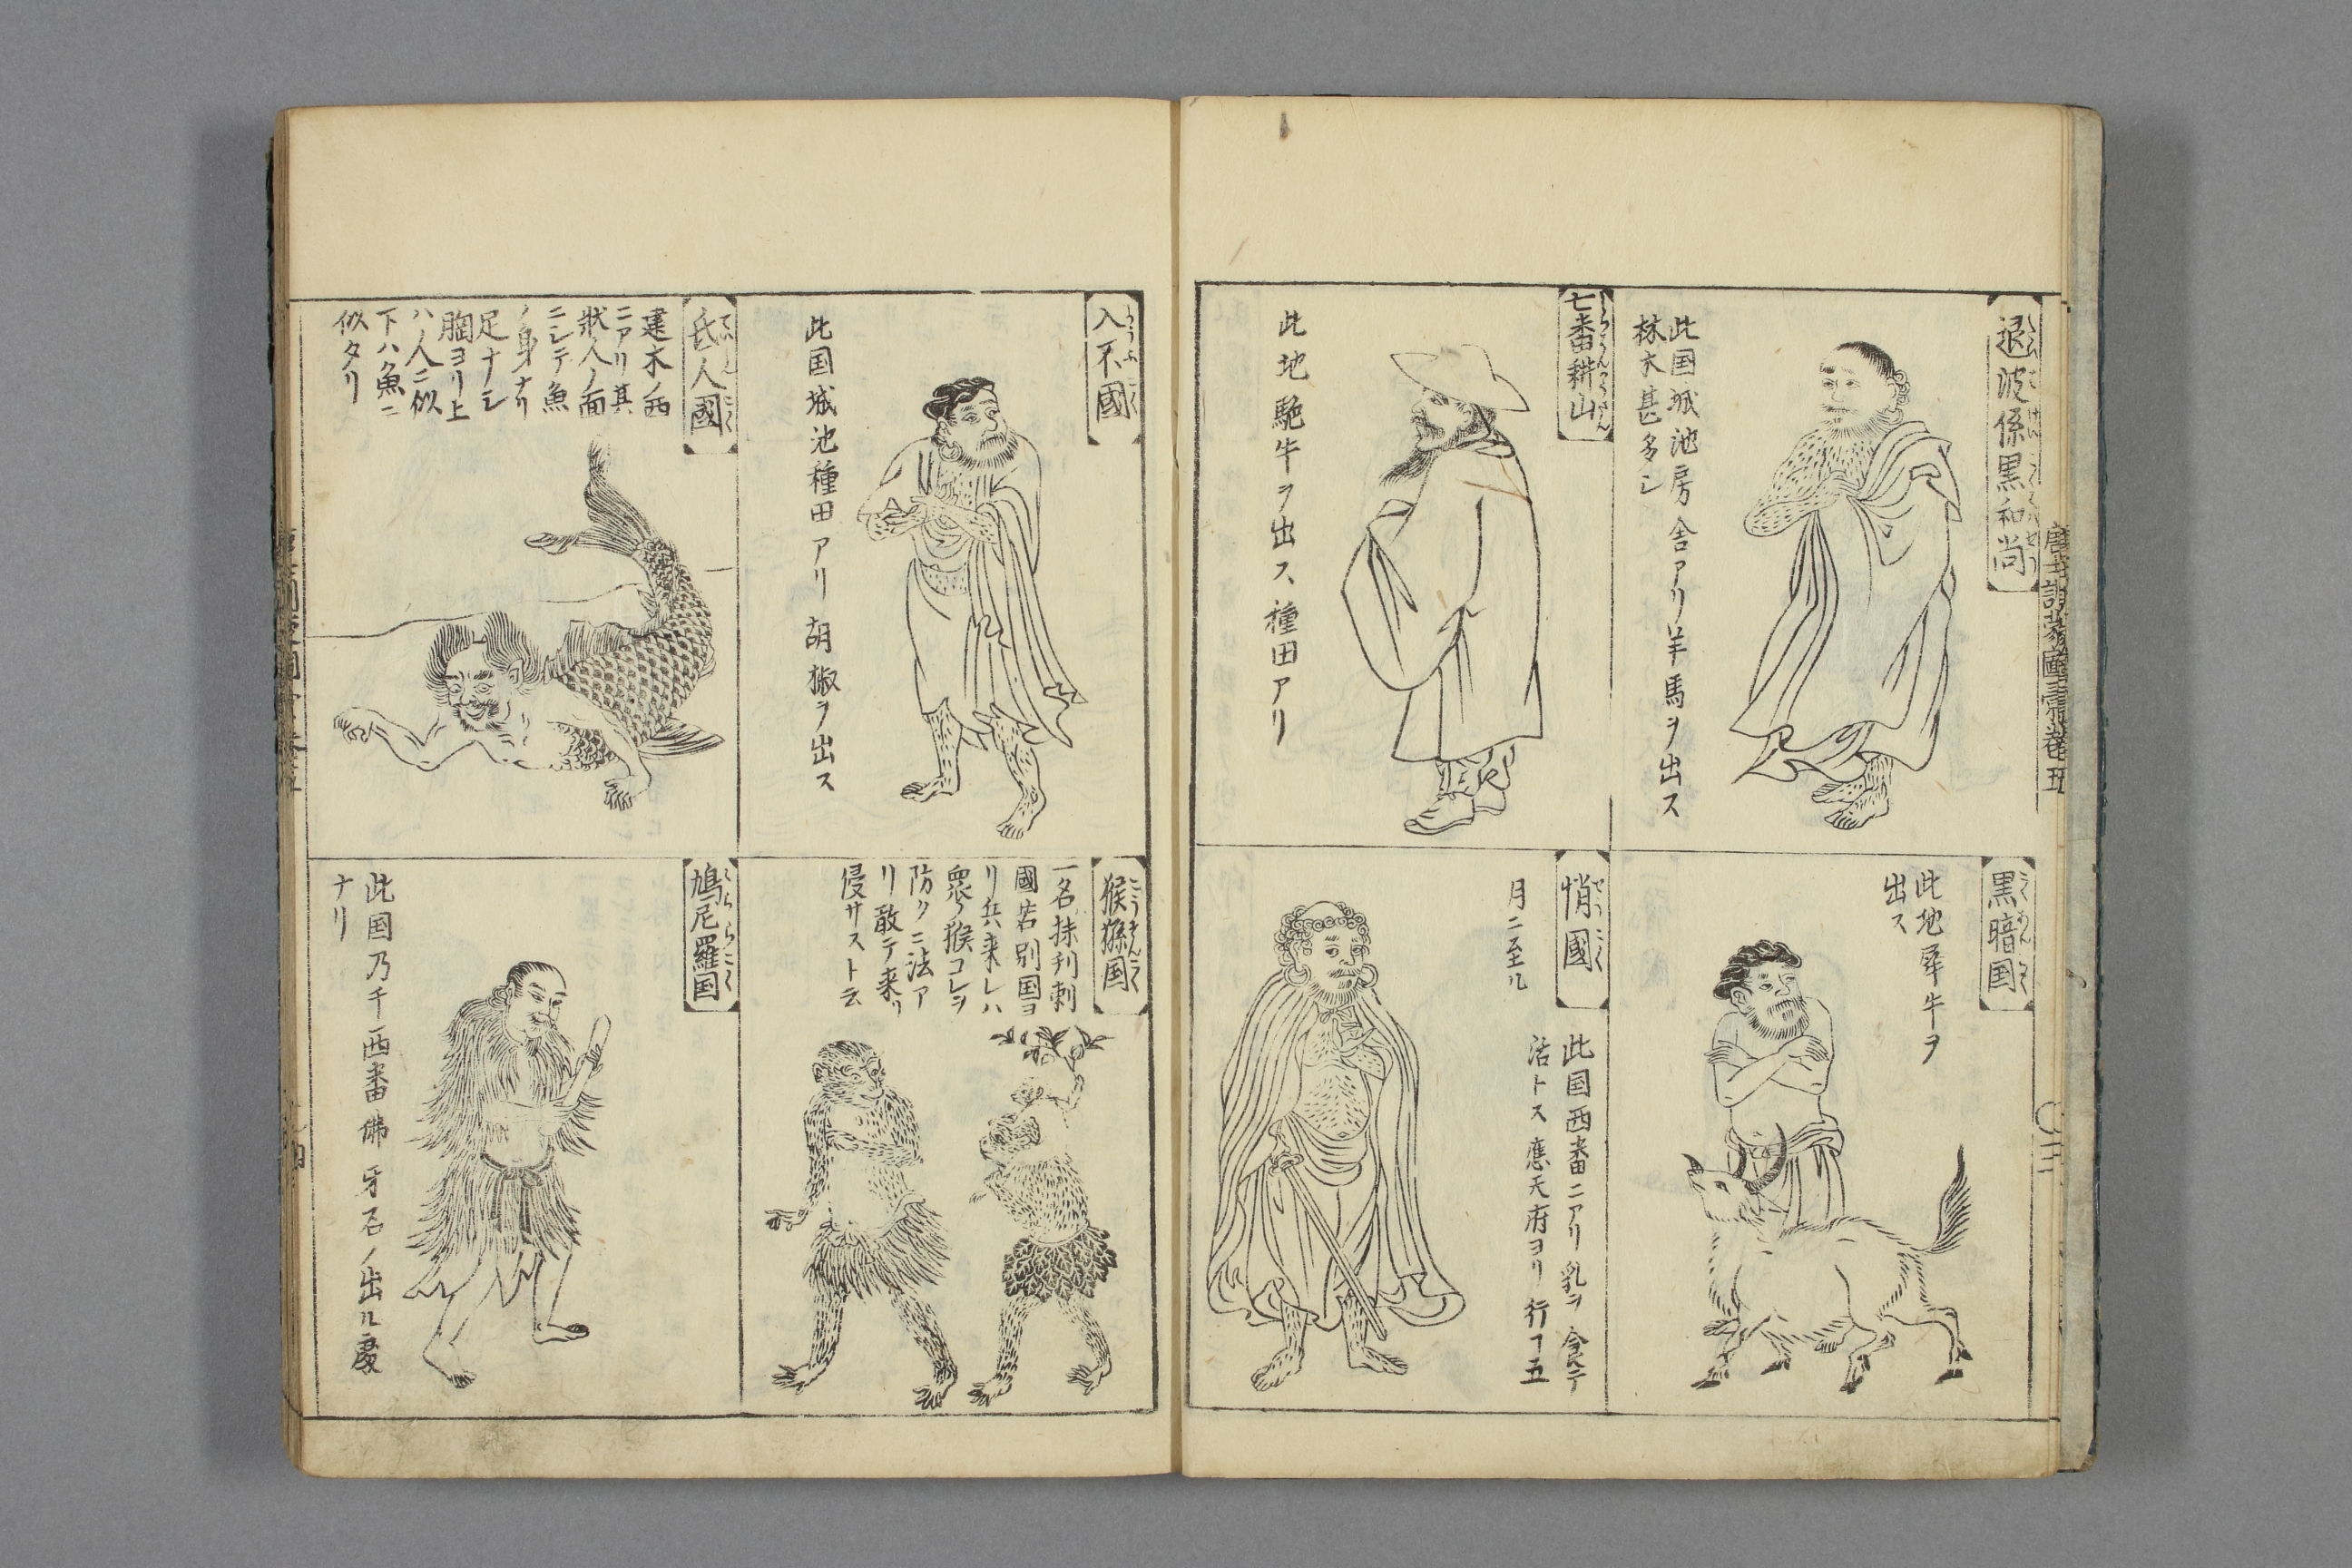 唐土訓蒙圖彙卷五
〇二
退波係黒和尚
此国城池房舎アリ羊馬ヲ出ス
林木甚多シ
七番耕山
此地駞牛ヲ出ス種田アリ
黒暗国
こくあんこく
此地犀牛ヲ
出ス
悄國
せつこく
此国西番ニアリ乳ヲ食テ
活トス應天府ヨリ行ヿ五
月ニ至ル
入不國
にうふこく
此国城池種田アリ胡椒ヲ出ス
氐人國
ていじんこく
建木ノ西
ニアリ其
狀人ノ面
ニシテ魚
ノ身ナリ
足ナシ
胸ヨリ上
ハ人ニ似
下ハ魚ニ
似タリ
猴猻国
こうそんこく
一名抹利刺
國若別国ヨ
リ兵来レハ
衆ノ猴コレヲ
防クニ法ア
リ敢テ来リ
侵サスト云
鳩尼羅国
此国乃千西番佛牙石ノ出ル處
ナリ